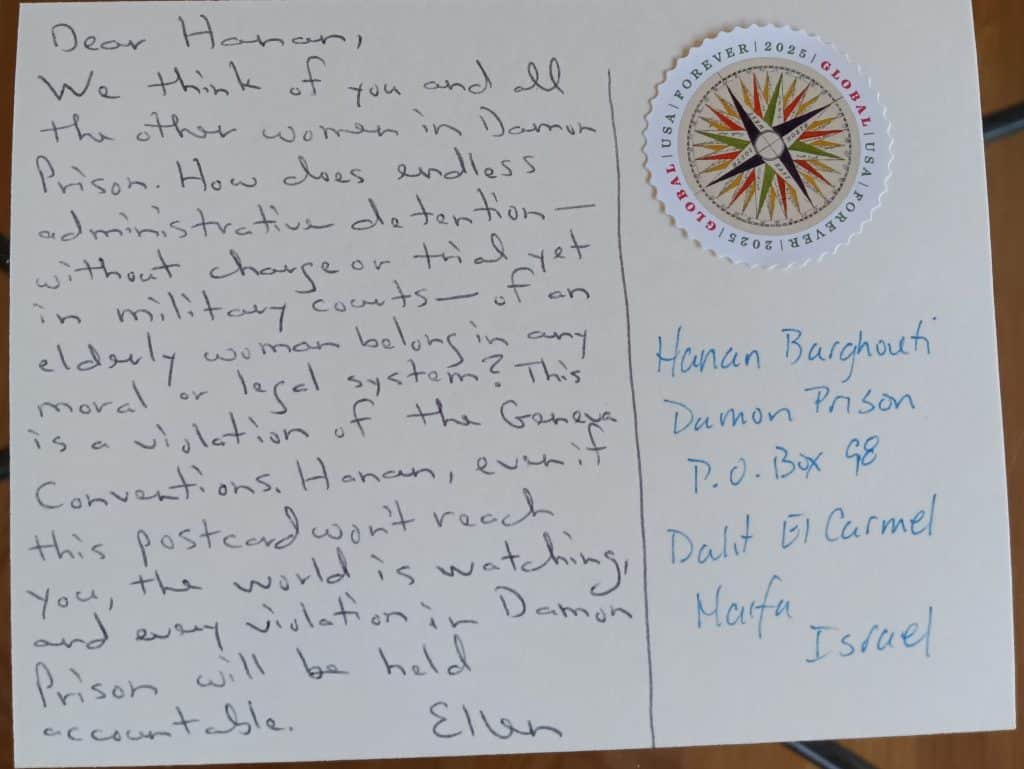 Dear Hanan,
We think of you and all
the other women in Damon
Prison. How does endless
administrative detention—
without charge or trial yet
in military courts— of an
elderly woman belong in any
moral or legal system? This
is a violation of the Geneva
Conventions. Hanan, even if
this postcard won't reach
you, the world is watching,
and every violation in Damon
Prison will be held
accountable. Ellen
GLOBAL | USA | FOREVER | 2025 | GLOBAL | USA | FOREVER | 2025 |
Hanan Barghouti
Damon Prison
P.O. Box 98
Dalit El Carmel
Haifa
Israel